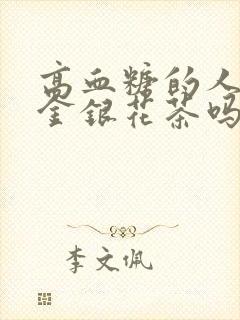 高血糖的人
金銀花茶吗
李文佩